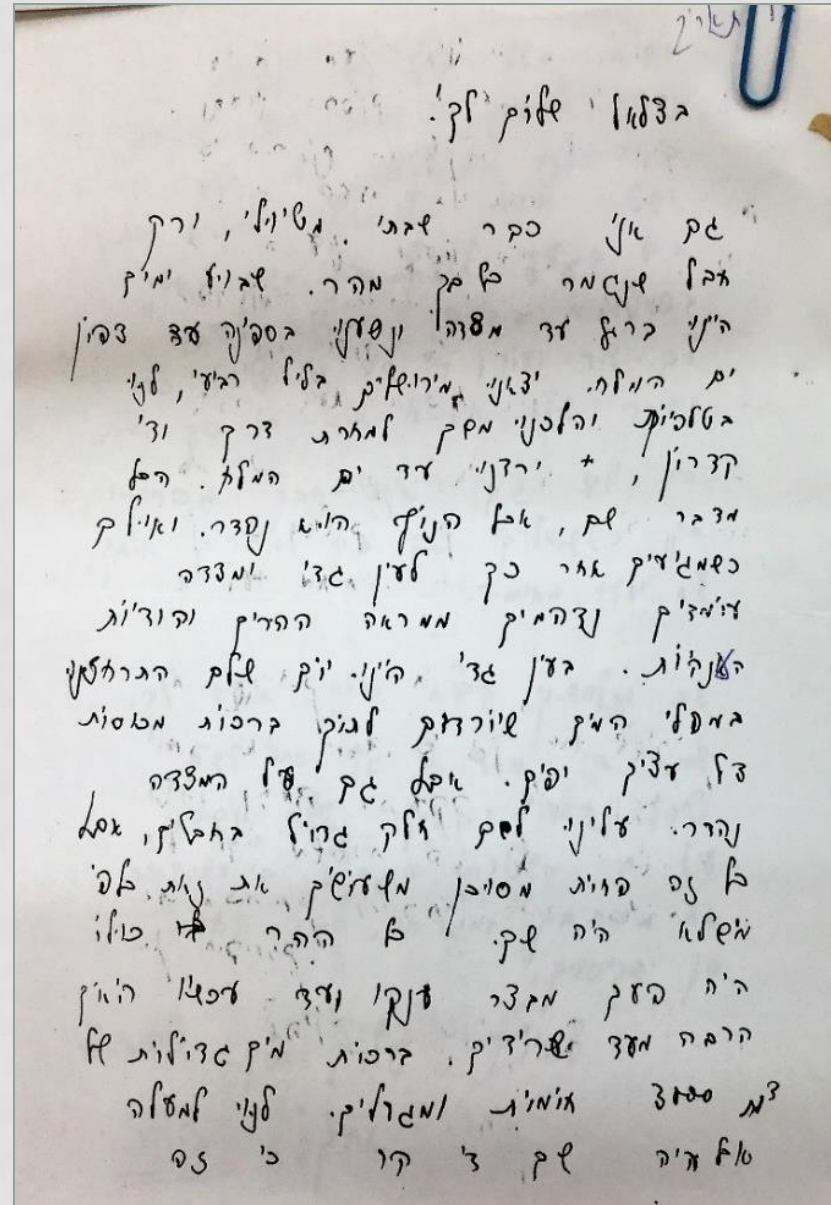 תאריך
בצלאל שלום לך!
גם אני כבר שבתי מטיולי, ורק
חבל שנגמר כל כך מהר. שבוע ימים
היינו ברגל עד מצדה ונשענו בספינה עד צפון
ים המלח. יצאנו מירושלים בליל רביעי, לנו
בטלפיות והלכנו משם למחרת דרך ודי
קדרון, * ירדנו עד ים המלח. הכל
מדבר שם, אבל הנוף הוא נהדר. ואולם
כשמגיעים אחר כך לעין גדי ומצדה
עומדים נדהמים ממראה ההרים והודיות
הענקיות. בעין גדי היינו יום שלם התרחצנו
במפלי המים שיורדים לתוך ברכות מכוסות
צל עצים יפים. אבל גם על המצדה
נהדר. עלינו לשם חלק גדול בחבלים, אבל
כל זה פחות מסוכן משעושים את זאת כלפי
מי שלא היה שם. כל ההר כולו
היה פעם מבצר ענקי ועד עכשיו רואים
הרבה מאד שרידים. ברכות מים גדולות של
חומות ומגדלים. לנו למעלה
אבל היה שם די קר כי זה